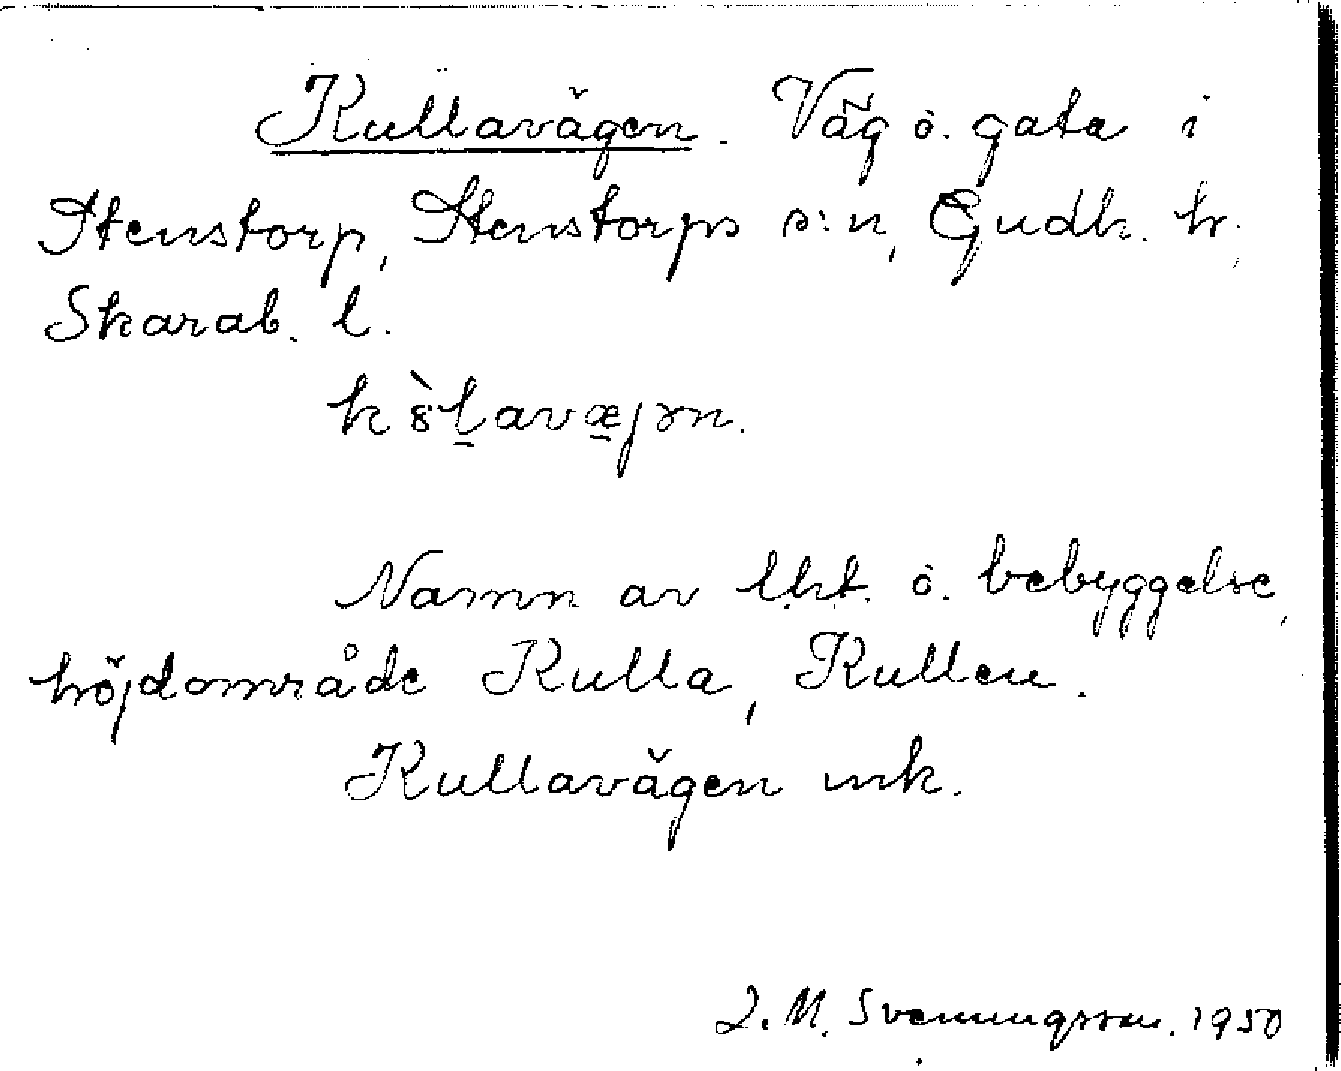 Kullavägen. Väg o. gata i
Stenstorp, Stenstorps s:n, Gudh. hr.
Skarab. l.
Namn av lkt. o. bebyggelse,
höjdområde Kulla, Kullen.
Kullavägen mk.
J. M. Svenningsson. 1950